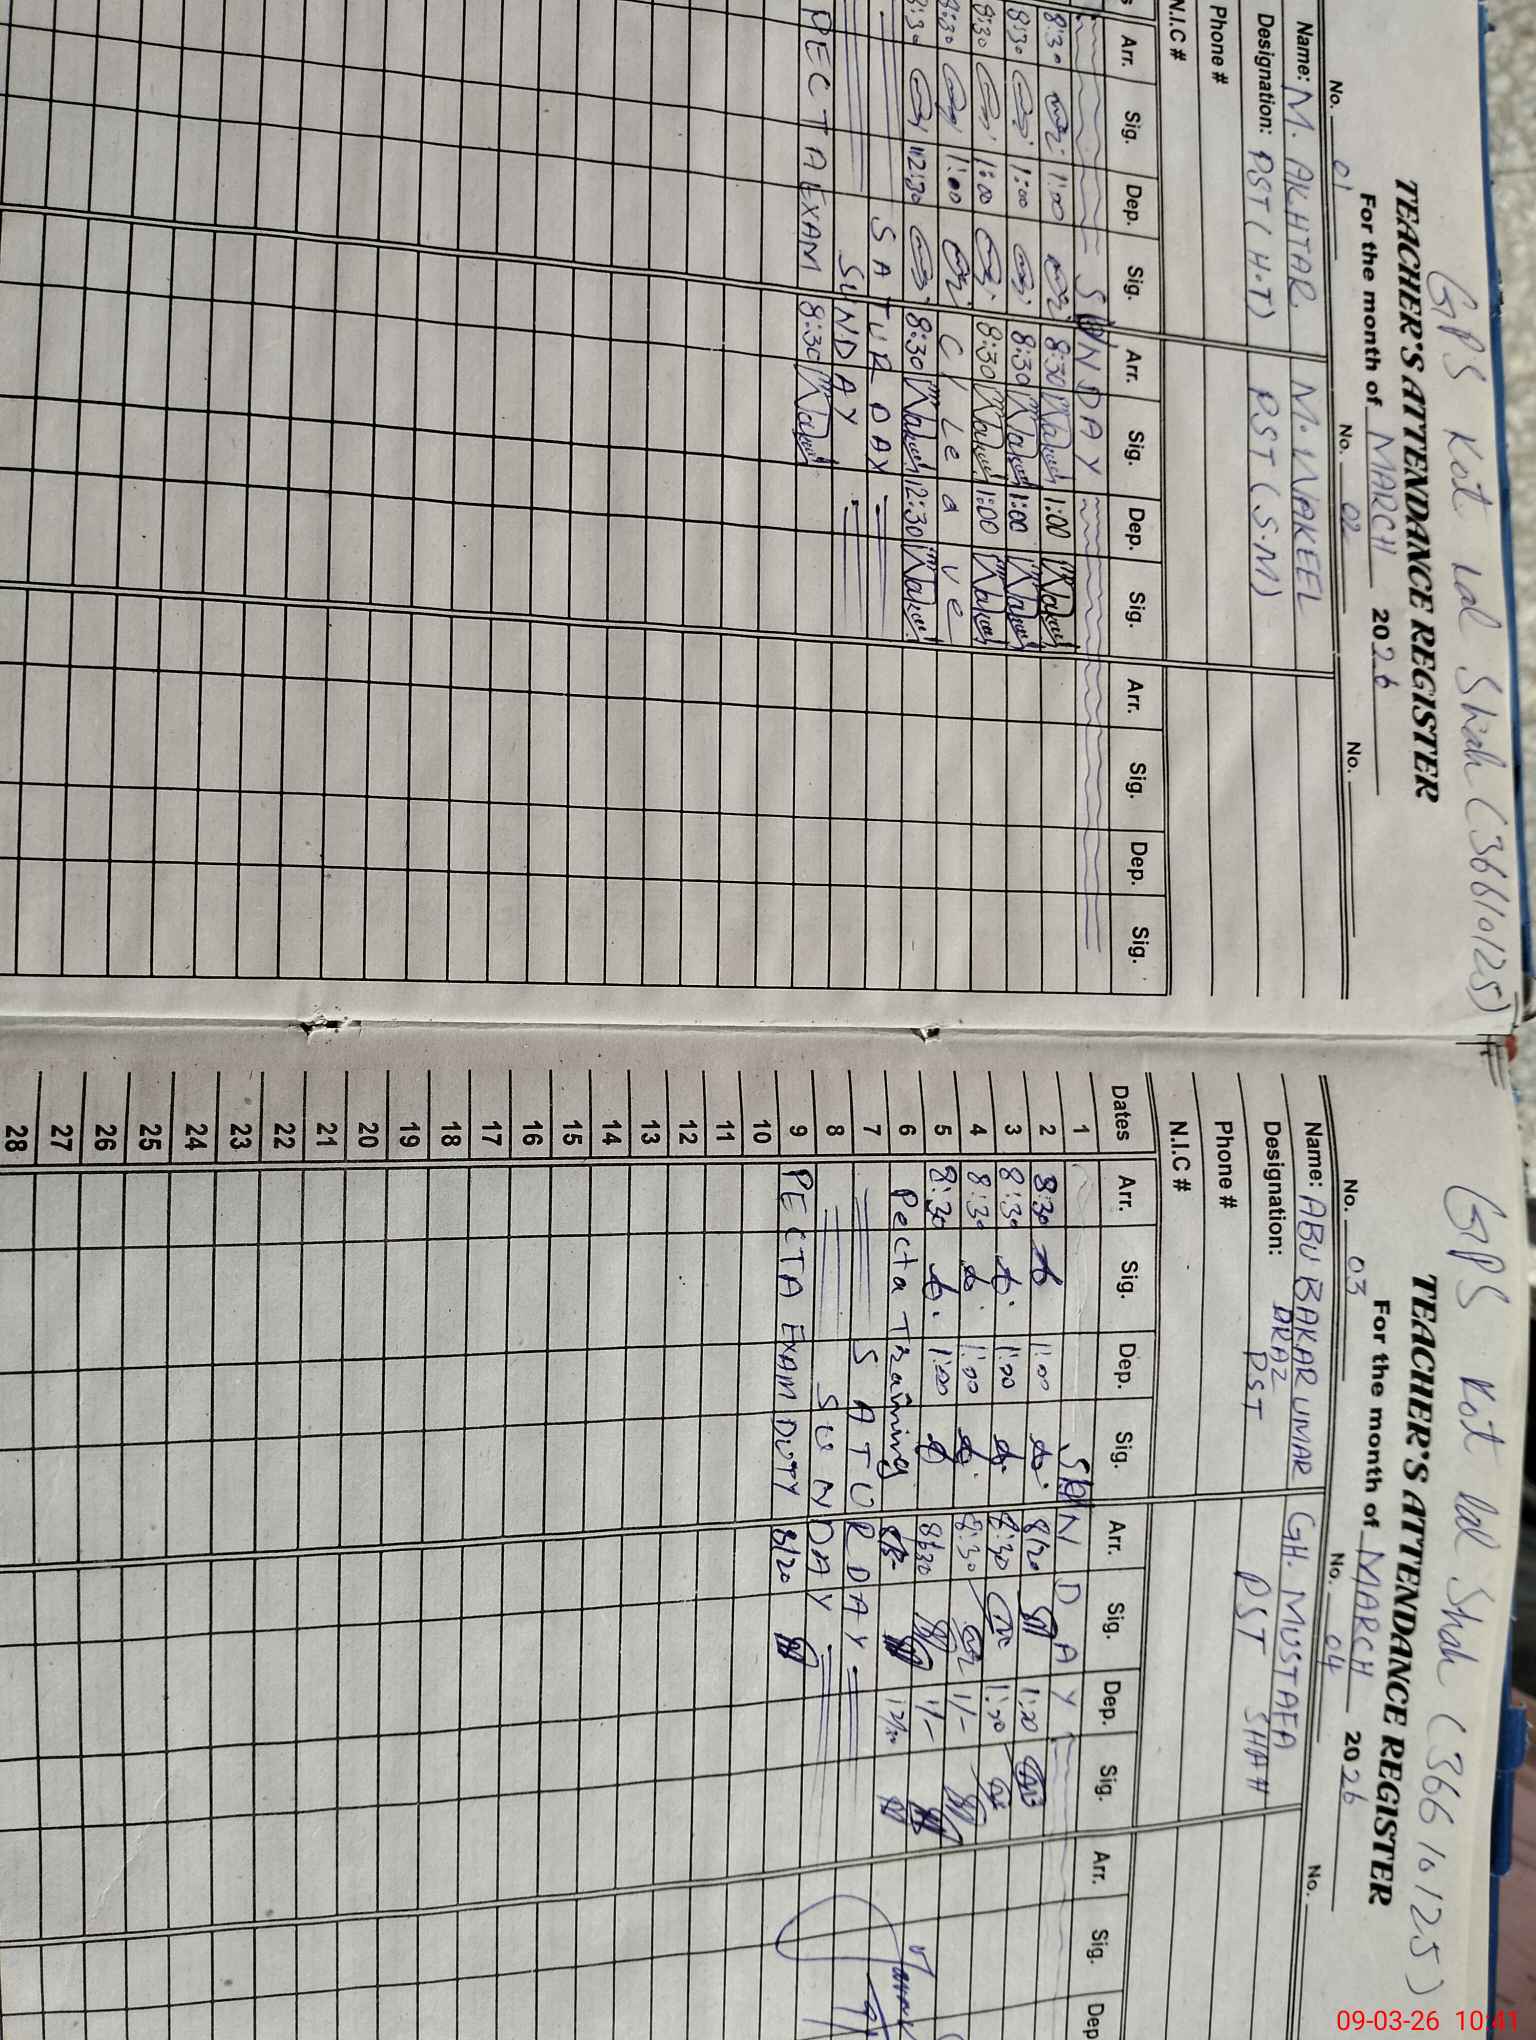 GPS Kot Lal Shah (36610125)
TEACHER'S ATTENDANCE REGISTER
For the month of MARCH 2026
No. 01 No. 02 No.
Name: M. AKHTAR M. WAKEEL
Designation: PST (H.T) PST (S.M)
Phone #
N.I.C #
Arr. Sig. Dep. Sig. Arr. Sig. Dep. Sig. Arr. Sig. Dep. Sig.
SUNDAY
8:30 1:00 8:30 1:00
8:30 1:00 8:30 1:00
8:30 1:00 8:30 1:00
8:30 1:00 C/Leave
8:30 12:30 8:30 12:30
SATURDAY
SUNDAY
PECTA EXAM 8:30
GPS Kot Lal Shah (36610125)
TEACHER'S ATTENDANCE REGISTER
For the month of MARCH 2026
No. 03 No. 04 No.
Name: ABU BAKAR UMAR GH. MUSTAFA
DRAZ SHAH
Designation: PST PST
Phone #
N.I.C #
Dates Arr. Sig. Dep. Sig. Arr. Sig. Dep. Sig. Arr. Sig. Dep
1 SUNDAY
2 8:30 1:00 8/30 1:00
3 8:30 1:00 8:30 1:00
4 8:30 1:00 8:30 1/-
5 8:30 1:00 8:30 1/-
6 Pecta Training
7 SATURDAY
8 SUNDAY
9 PECTA EXAM DUTY 8/20
10
11
12
13
14
15
16
17
18
19
20
21
22
23
24
25
26
27
28
09-03-26 10:41